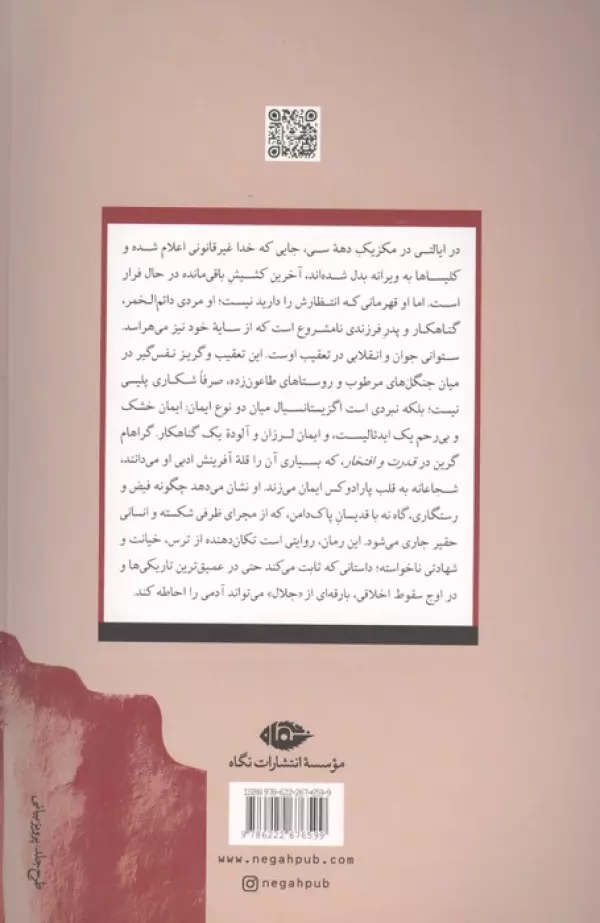 در ایالتی در مکزیکِ دههٔ سی، جایی که خدا غیرقانونی اعلام شده و
کلیساها به ویرانه بدل شده‌اند، آخرین کشیشِ باقی‌مانده در حال فرار
است. اما او قهرمانی که انتظارش را دارید نیست؛ او مردی دائم‌الخمر،
گناهکار و پدر فرزندی نامشروع است که از سایهٔ خود نیز می‌هراسد.
ستوانی جوان و انقلابی در تعقیب اوست. این تعقیب و گریز نفس‌گیر در
میان جنگل‌های مرطوب و روستاهای طاعون‌زده، صرفاً شکاری پلیسی
نیست؛ بلکه نبردی است اگزیستانسیال میان دو نوع ایمان: ایمان خشک
و بی‌رحم یک ایدئالیست، و ایمان لرزان و آلودهٔ یک گناهکار. گراهام
گرین در قدرت و افتخار، که بسیاری آن را قلهٔ آفرینش ادبی او می‌دانند،
شجاعانه به قلب پارادوکس ایمان می‌زند. او نشان می‌دهد چگونه فیض و
رستگاری، گاه نه با قدیسانِ پاک‌دامن، که از مجرای ظرفی شکسته و انسانی
حقیر جاری می‌شود. این رمان، روایتی است تکان‌دهنده از ترس، خیانت و
شهادتی ناخواسته؛ داستانی که ثابت می‌کند حتی در عمیق‌ترین تاریکی‌ها و
در اوج سقوط اخلاقی، بارقه‌ای از «جلال» می‌تواند آدمی را احاطه کند.
مؤسسهٔ انتشارات نگاه
ISBN 978-622-267-659-9
9 786222 676599
www.negahpub.com
negahpub
طرح جلد: پرویز بیانی